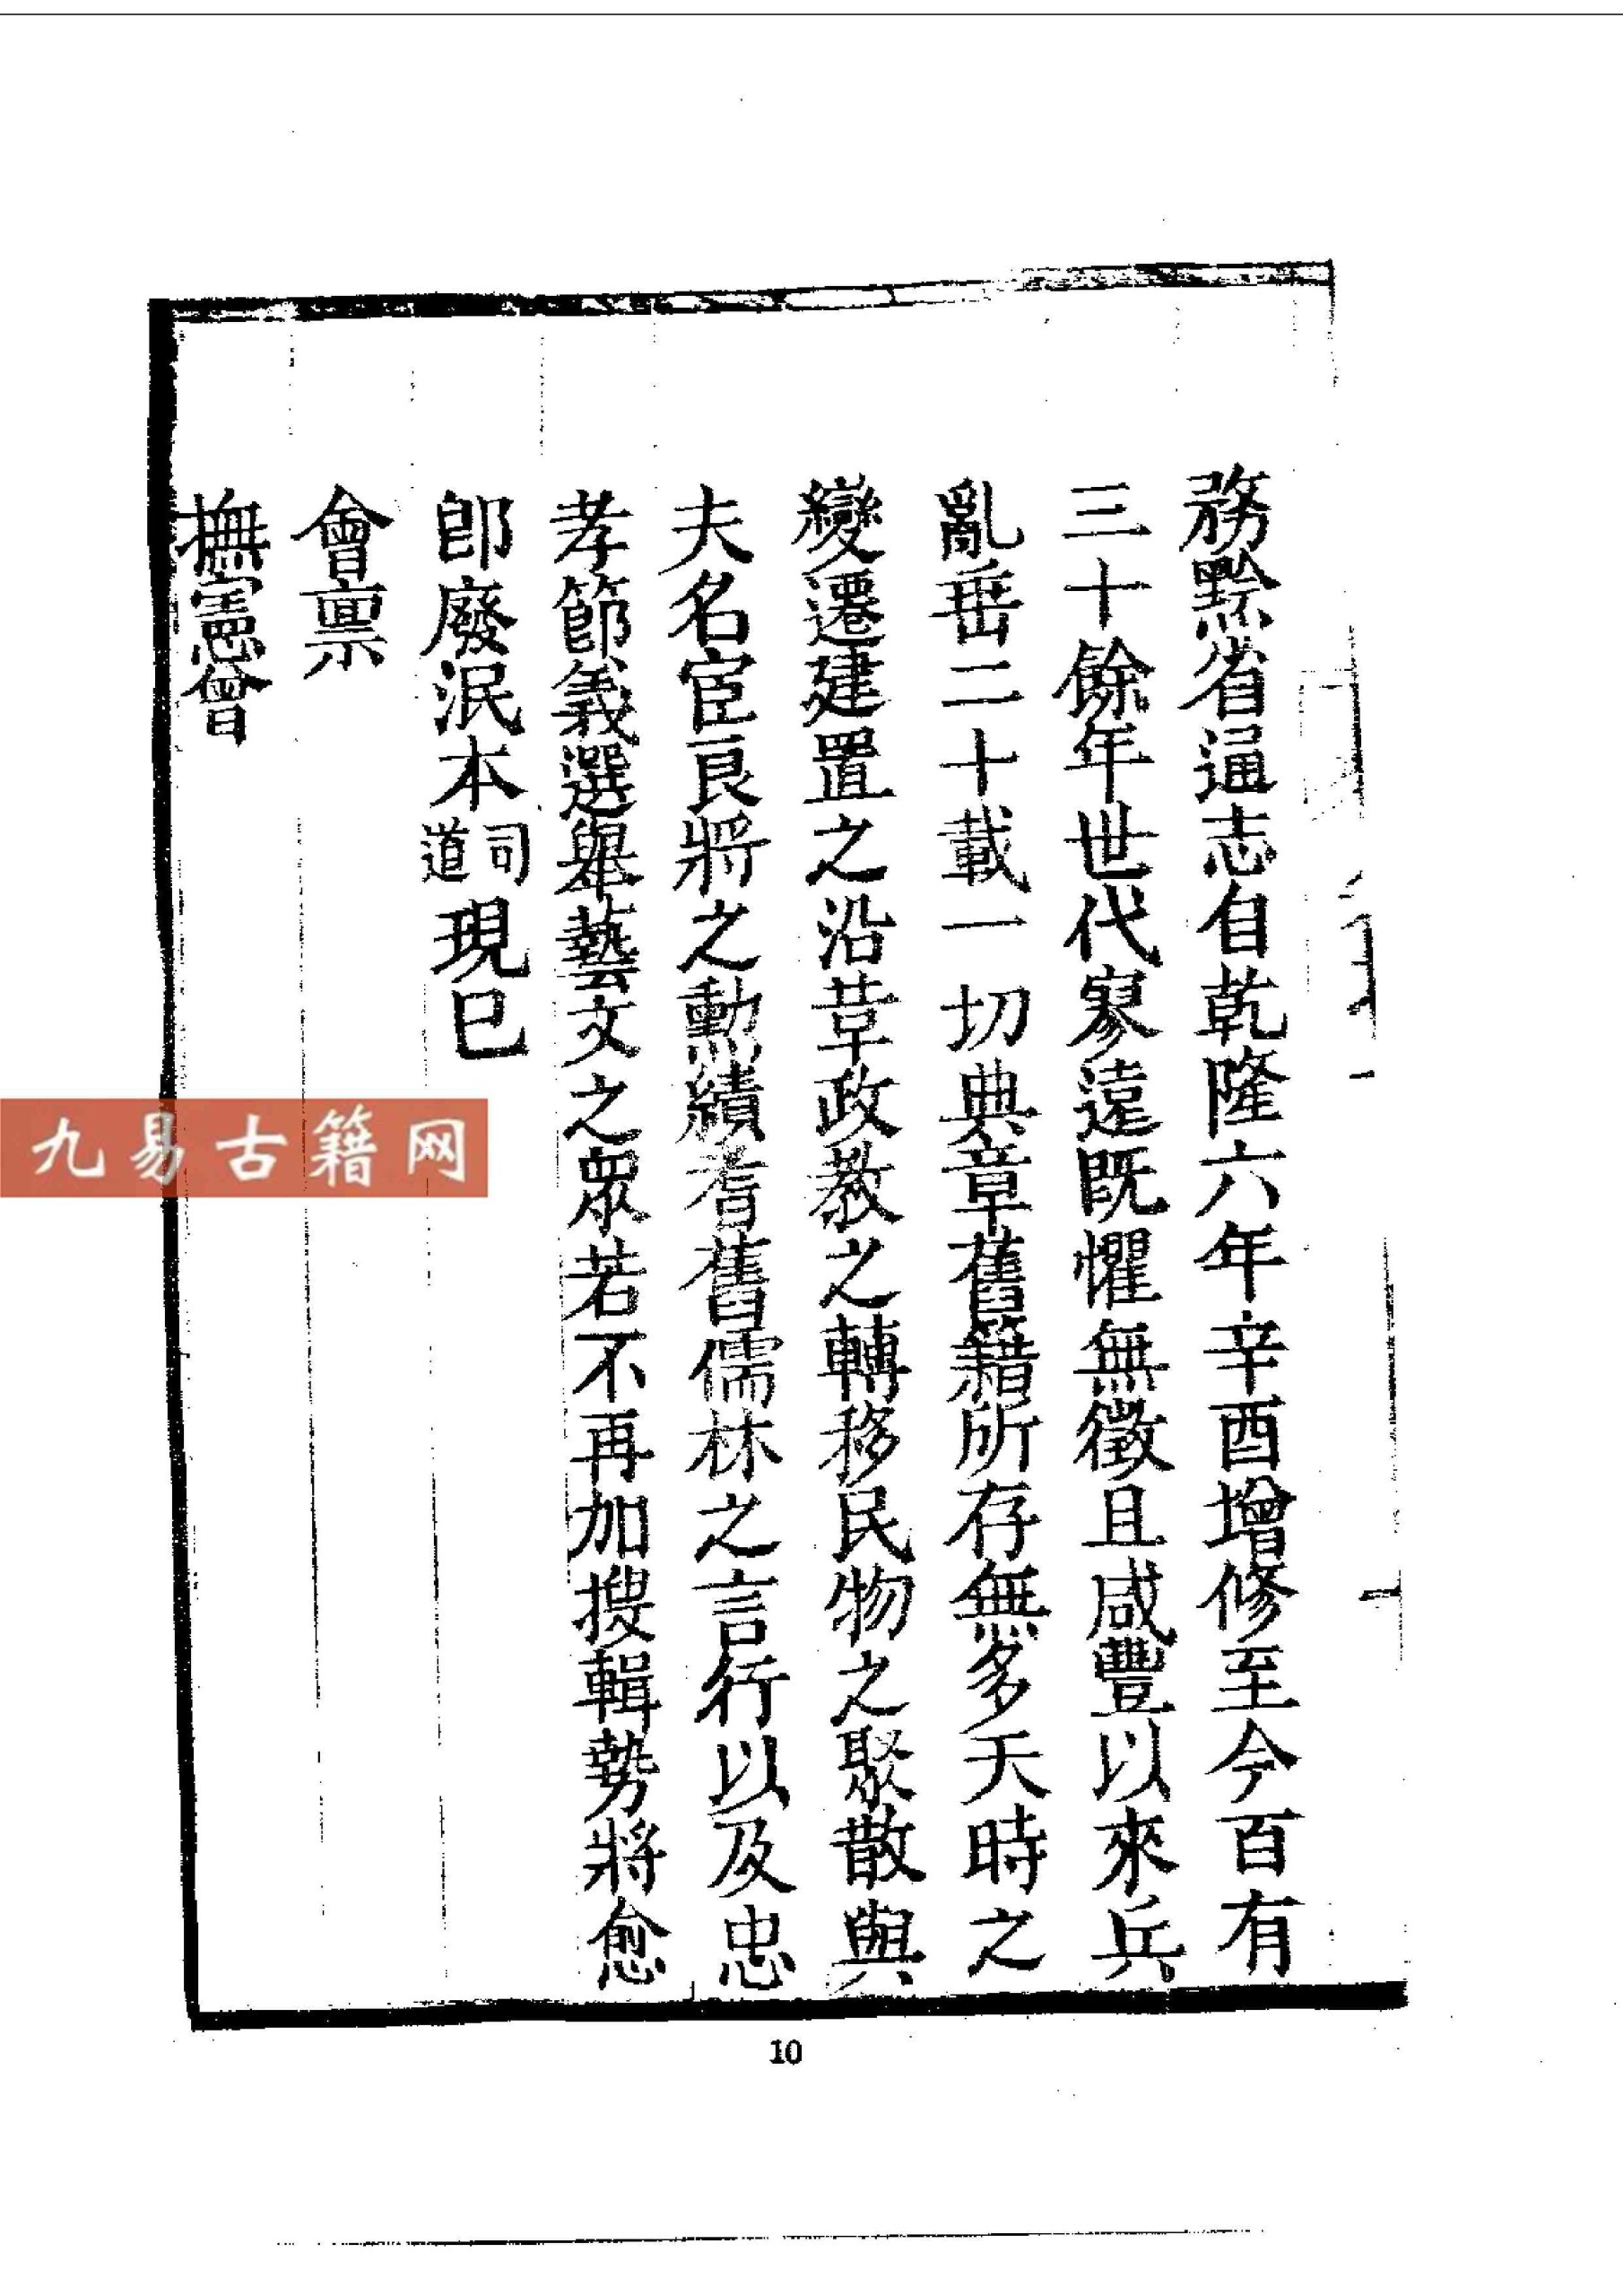 務黔省通志自乾隆六年辛酉增修至今百有
三十餘年世代寥遠既懼無徵且咸豐以來兵
亂垂二十載一切典章舊籍所存無多天時之
變遷建置之沿革政教之轉移民物之聚散與
夫名宦良將之勳績耆舊儒林之言行以及忠
孝節義選舉藝文之眾若不再加搜輯勢將愈
即廢泯本司道現已
會稟
撫憲曾
九易古籍网
10